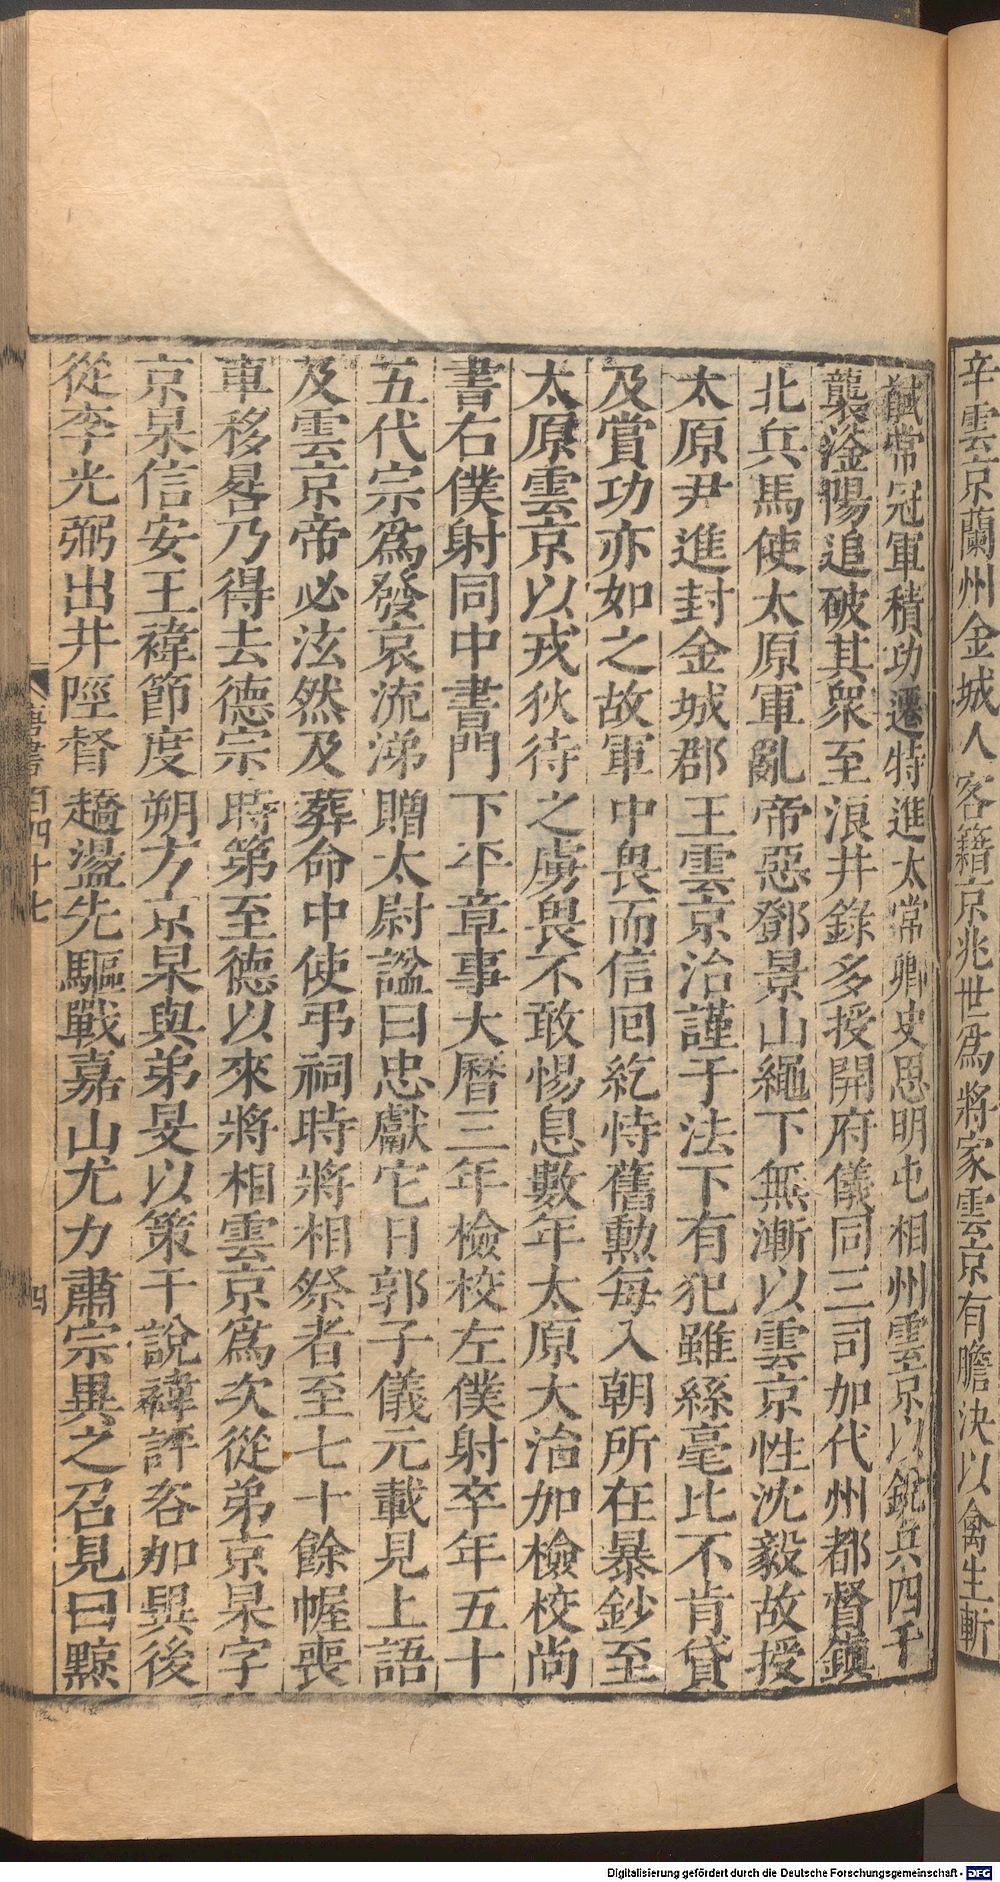 辛雲京蘭州金城人客籍京兆世爲將家雲京有膽決以禽生斬
馘常冠軍積功遷特進太常卿史思明屯相州雲京以銳兵四千
襲滏陽追破其衆至浪井錄多授開府儀同三司加代州都督鎮
北兵馬使太原軍亂帝惡鄧景山繩下無漸以雲京性沈毅故授
太原尹進封金城郡王雲京治謹于法下有犯雖絲毫比不肯貸
及賞功亦如之故軍中畏而信回紇恃舊勲每入朝所在暴鈔至
太原雲京以戎狄待之虜畏不敢惕息數年太原大治加檢校尚
書右僕射同中書門下平章事大曆三年檢校左僕射卒年五十
五代宗爲發哀流涕贈太尉謚曰忠獻它日郭子儀元載見上語
及雲京帝必泫然及葬命中使弔祠時將相祭者至七十餘幄喪
車移晷乃得去德宗時第至德以來將相雲京爲次從弟京杲字
京杲信安王褘節度朔方京杲與弟旻以策干說褘評咨加異後
從李光弼出井陘督趫盪先驅戰嘉山尤力肅宗異之召見曰黥
唐書百四十七
四
Digitalisierung gefördert durch die Deutsche Forschungsgemeinschaft - DFG